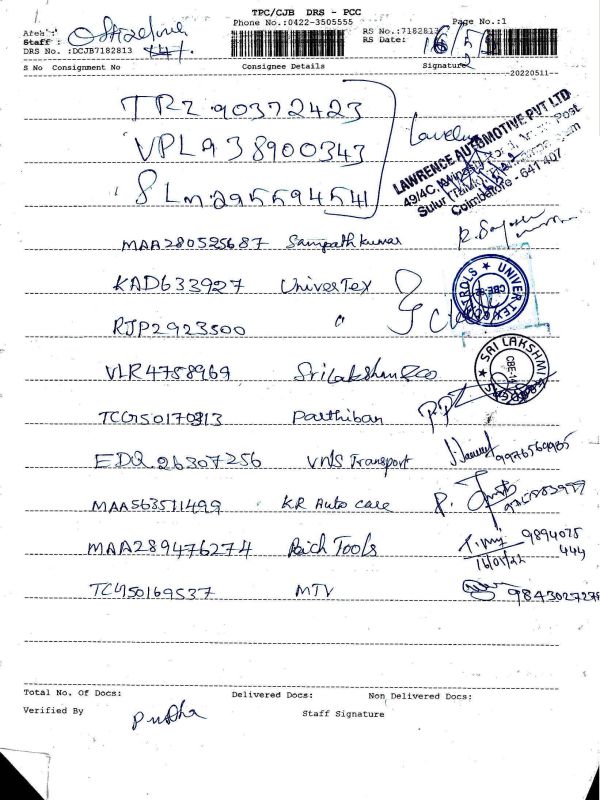 TPC/CJB DRS - PCC
Phone No.:0422-3505555 Page No.:1
Area :
Staff :
RS No.:7182813
DRS No. :DCJB7182813
RS Date:
S No Consignment No Consignee Details Signature
20220511
TRZ 90372423
VPL938900343
SLM295594541
LAWRENCE AUTOMOTIVE PVT LTD
Coimbatore - 641 407
MAA280525687 Sampathkumar
KAD633927 UniverTex
RJP2923500 "
UNIVER TEX CONTROLS
VLR4758969 Srilakshmi &co
SRI LAKSHMI
CBE-14
TCG150170313 Parthiban
EDQ 26307256 VMS Transport
MAA563511499 KR Auto care
MAA289476274 Rich Tools
9894075
444
16/01/22
TCG150169537 MTV
Total No. Of Docs: Delivered Docs: Non Delivered Docs:
Verified By Pushpa Staff Signature